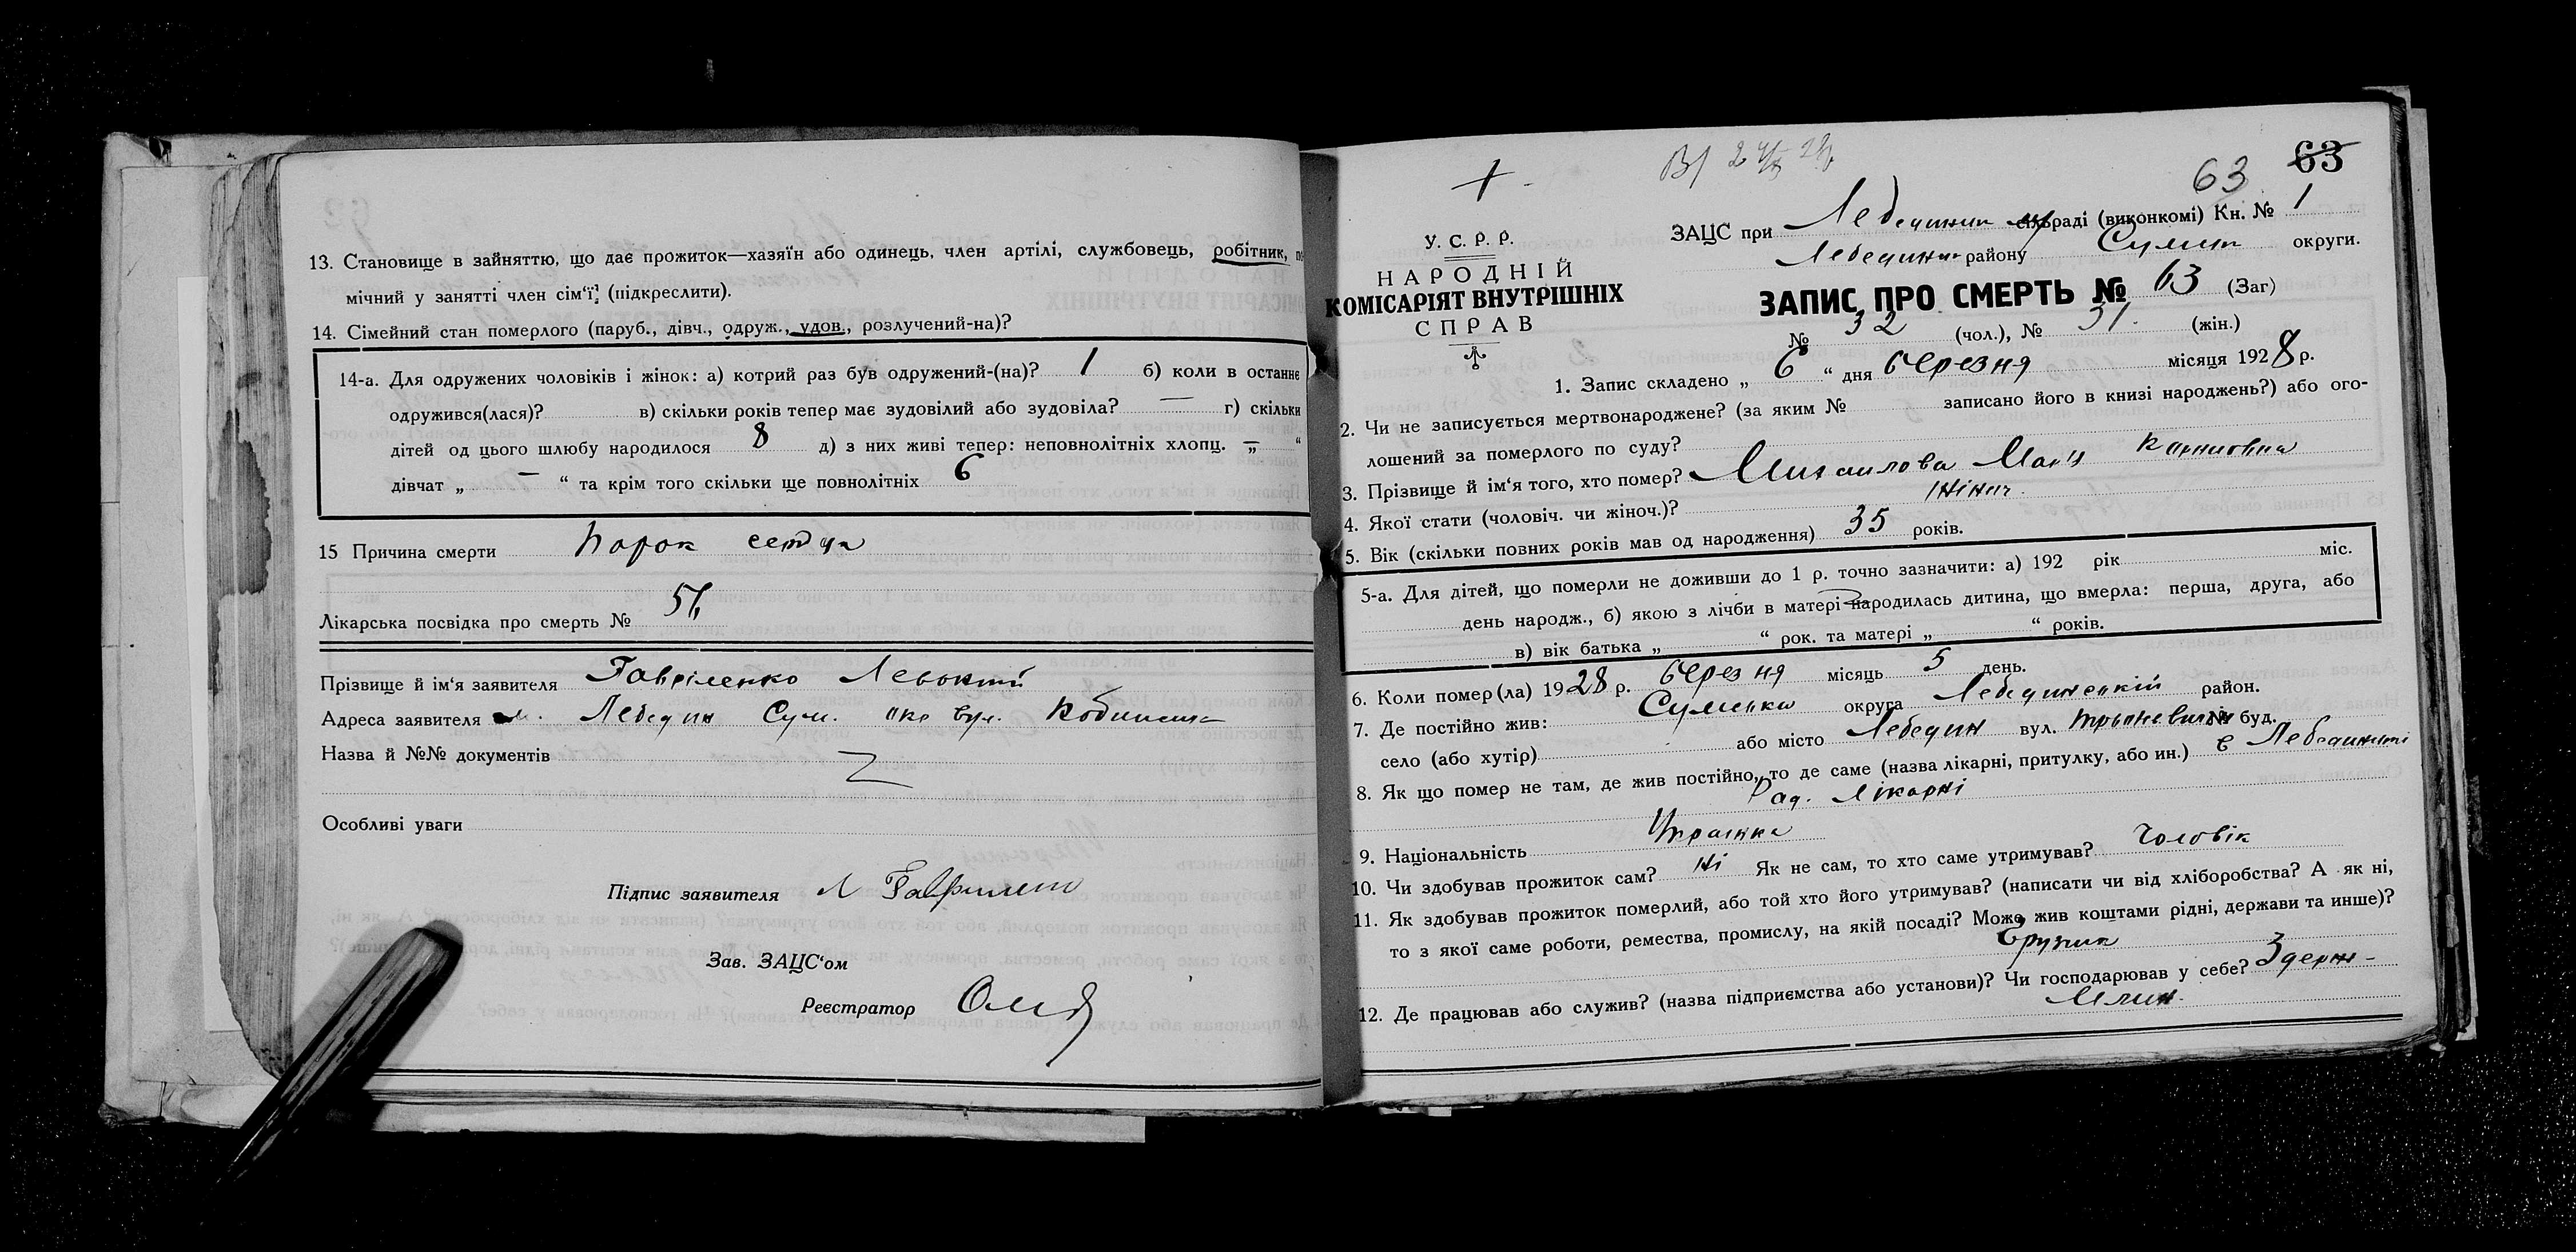 13. Становище в зайняттю, що дає прожиток—хазяїн або одинець, член артілі, службовець, робітник,
мічний у занятті член сім‘ї, (підкреслити).
14. Сімейний стан померлого (паруб., дівч., одруж., удов., розлучений-на)?
14-а. Для одружених чоловіків і жінок: а) котрий раз був одружений-(на)? 1 б) коли в останнє
одружився(лася)? в) скільки років тепер має зудовілий або зудовіла? — г) скільки
дітей од цього шлюбу народилося 8 д) з них живі тепер: неповнолітніх хлопц. „ — “
дівчат „ — “ та крім того скільки ще повнолітніх 6
15 Причина смерти Порок сердца
Лікарська посвідка про смерть №
Прізвище й ім‘я заявителя Гавриленко
Адреса заявителя м. Лебедин Сум. окр вул.
Назва й №№ документів
Особливі уваги
Підпис заявителя Л
Зав. ЗАЦС‘ом
Реєстратор
63
63
У. С. Р. Р.
НАРОДНІЙ
КОМІСАРІЯТ ВНУТРІШНІХ
СПРАВ
ЗАЦС при Лебединск сільраді (виконкомі) Кн. № 1
Лебединск району Сумск округи.
ЗАПИС ПРО СМЕРТЬ № 63 (Заг)
№ 32 (чол.), № 31. (жін.)
1. Запис складено „ 6 “ дня березня місяця 1928 р.
2. Чи не записується мертвонароджене? (за яким № записано його в книзі народжень?) або ого-
лошений за померлого по суду?
3. Прізвище й ім‘я того, хто помер? Михаилова Мар‘я
4. Якої стати (чоловіч. чи жіноч.)? жіноч.
5. Вік (скільки повних років мав од народження) 35 років.
5-а. Для дітей, що померли не доживши до 1 р. точно зазначити: а) 192 рік міс.
день народж., б) якою з лічби в матері народилась дитина, що вмерла: перша, друга, або
в) вік батька „ “ рок. та матері „ “ років.
6. Коли помер(ла) 1928 р. березня місяць 5 день.
7. Де постійно жив: Сумська округа Лебединський район.
село (або хутір) або місто Лебедин вул. № буд.
8. Як що помер не там, де жив постійно, то де саме (назва лікарні, притулку, або ин.) в Лебединській
Рад. лікарні
9. Національність Українка
10. Чи здобував прожиток сам? ні Як не сам, то хто саме утримував? чоловік
11. Як здобував прожиток померлий, або той хто його утримував? (написати чи від хліборобства? А як ні,
то з якої саме роботи, ремества, промислу, на якій посаді? Може жив коштами рідні, держави та инше)?
Грузчик
12. Де працював або служив? (назва підприємства або установи)? Чи господарював у себе? Здерж-
млин.